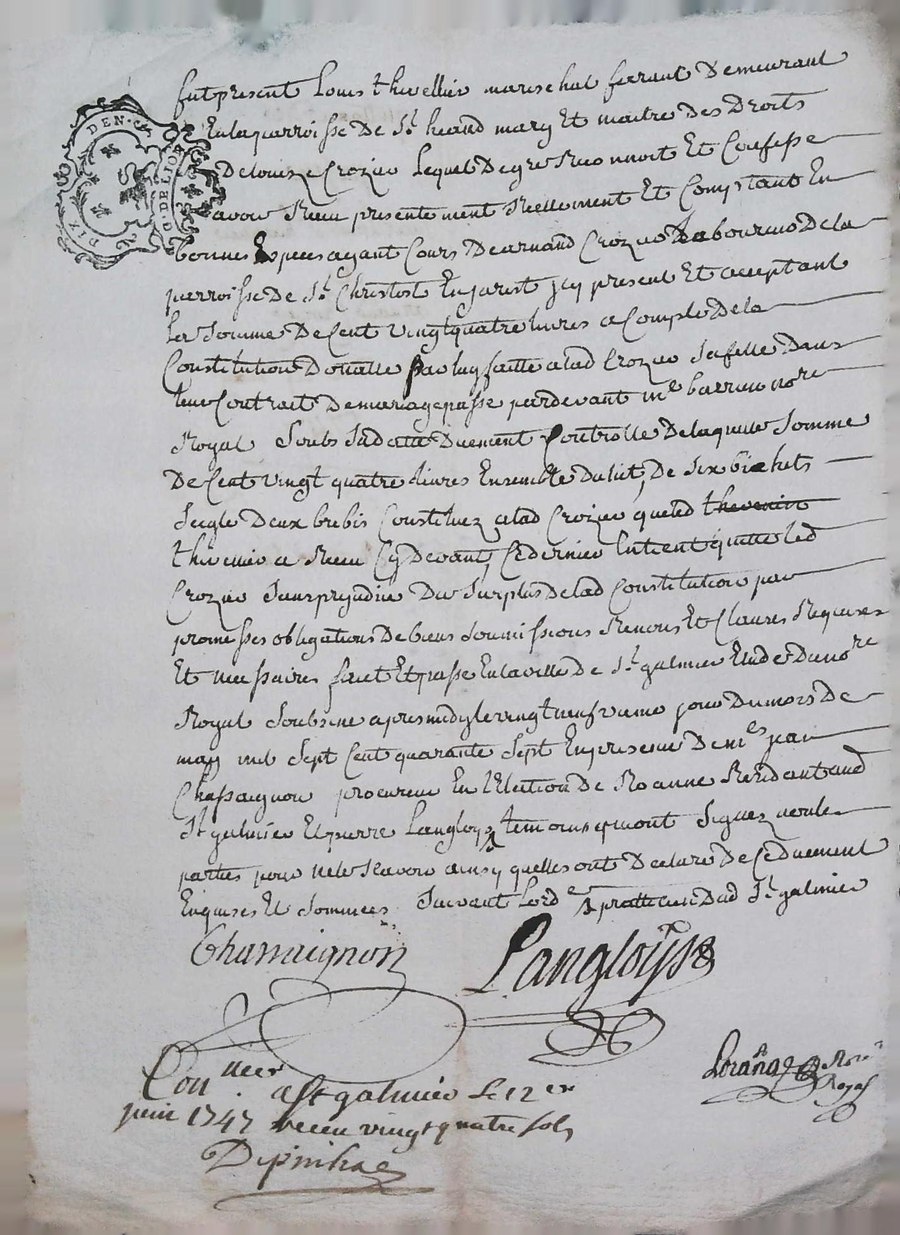 DIX DEN.
G. DE LION
fut present Louis thevellier mareschal ferrant Demeurant
En la parroisse De St. heand mary Et maitre Des Droits
De Louize Crozier Lequel De gre Reconnoit Et Confesse
avoir Receu presentement Reellement Et Comptant En
bonnes Especes ayant Cours De arnaud Crozier Laboureur De la
perroisse De St. Christost En jarest jcy present Et acceptant
La Somme De Cent Vingt quatre livres a Compte De la
Constitution Dotalle par luy faitte a lad Crozier Sa fille Dans
leur Contrat De mariage passe pardevant me. nore
Royal Soubs Sa datte Duement Controlle De laquelle Somme
De Cent Vingt quatre livres Ensemble Du lit, De Six bichets
Seigle Deux brebis Constituez a lad Crozier, que led thevenin
thevellier a Receu Cy Devant, Ce dernier Entient quitte led
Crozier Sans prejudice Du Surplus De lad Constitution par
promesses obligations De biens Soumissions Renons Et Clauses Requises
Et necessaires fait Et passe En la ville De St. galmier Etude Du nore
Royal Soubsne apres midy le vingt neufvieme jour Du mois De
may mil Sept Cent quarante Sept En presence De me. jean
Chassaignon procureur En l'Election De Roanne Residant aud
St. galmier Et pierre Langloys temoins qui ont Signez non les
parties pour ne le Scavoir ainsy quelles ont Declare De Ce Duement
Enquises Et Sommees Suivant Lorde Dud St. galmier
Chassaignon
Langloys
nore
Royal
Con a St galmier le 12 er
juin 1747 Receu vingt quatre sols